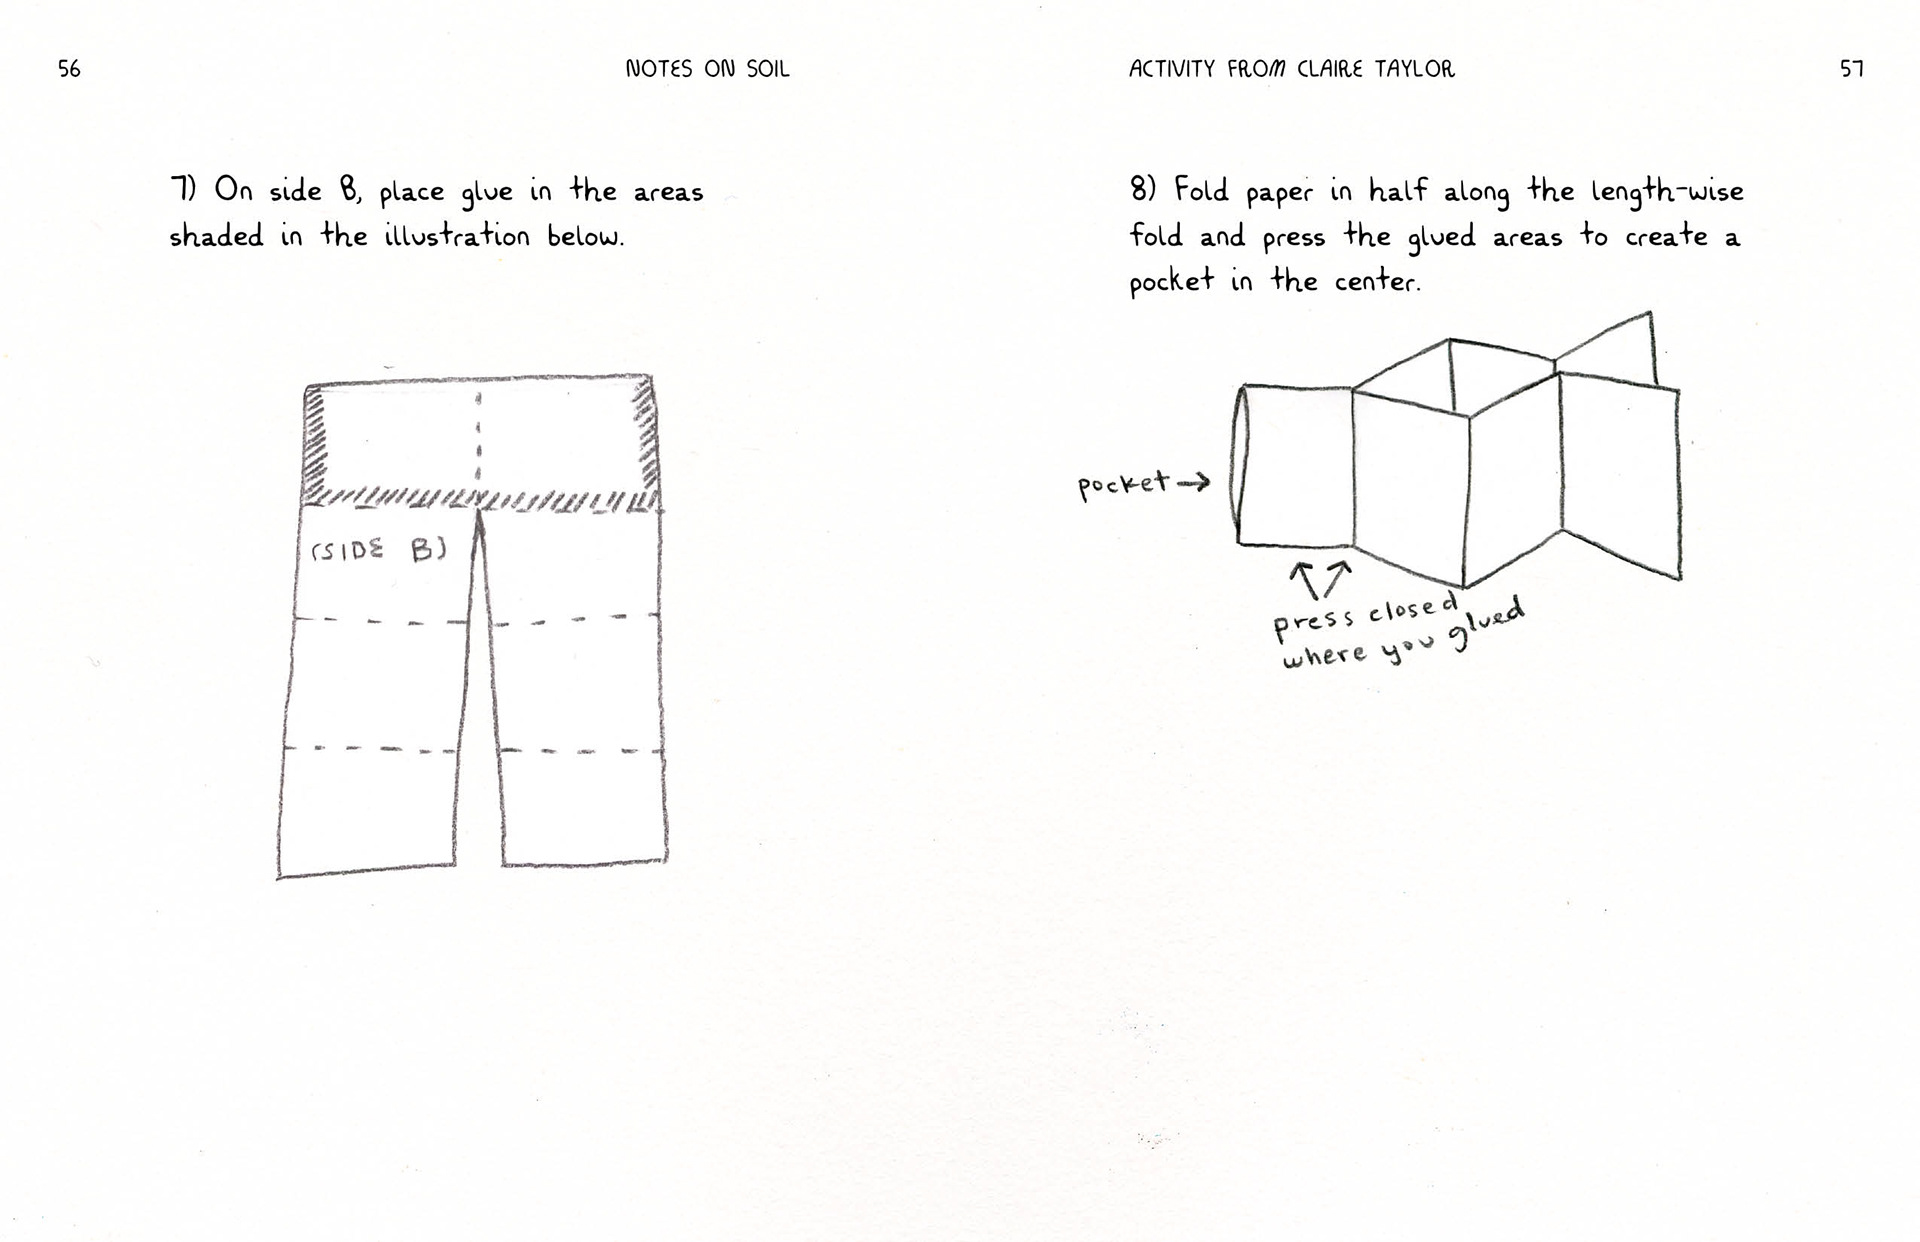 56
NOTES ON SOIL
7) On side B, place glue in the areas
shaded in the illustration below.
(SIDE B)
ACTIVITY FROM CLAIRE TAYLOR
57
8) Fold paper in half along the length-wise
fold and press the glued areas to create a
pocket in the center.
pocket →
press closed
where you glued